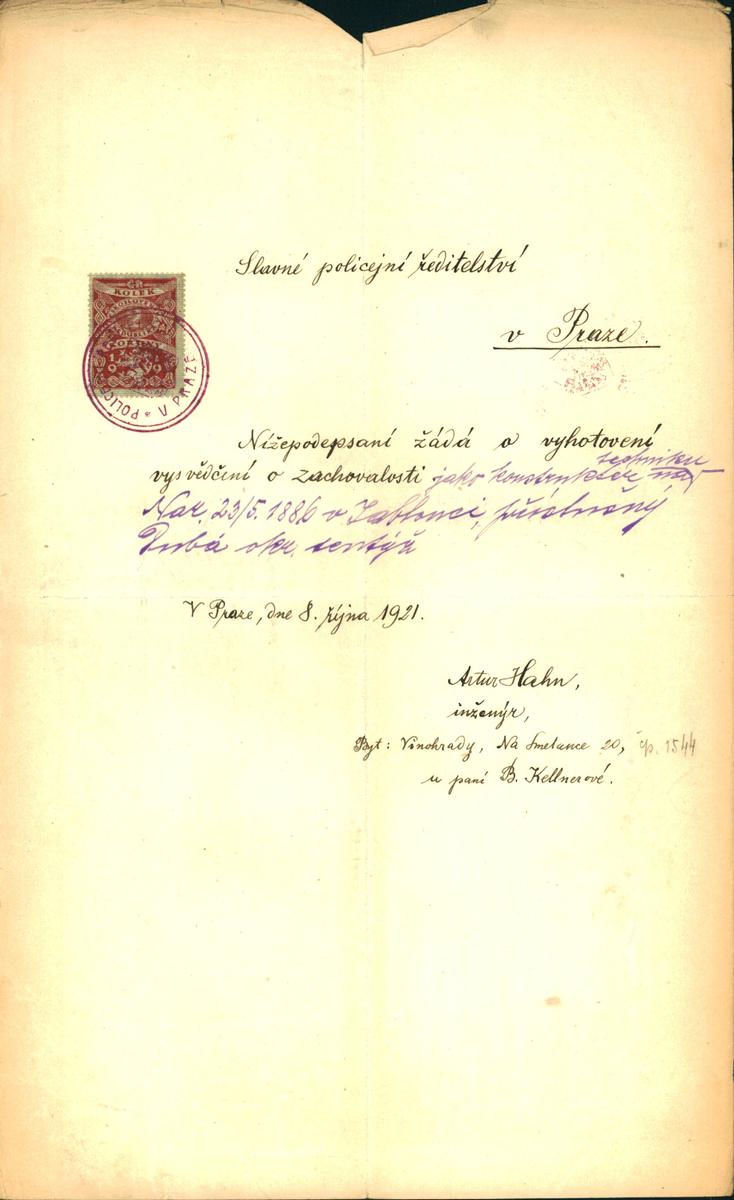 Slavné policejní ředitelství
v Praze.
KOLEK
1919
V PRAZE
Nížepodepsaní žádá o vyhotovení
vysvědčení o zachovalosti jako konstruktér
techniku
Nar. 23/5. 1886 v Jablonci, příslušný
Dubá okr. tentýž
V Praze, dne 8. října 1921.
Artur Hahn,
inženýr,
Byt: Vinohrady, Na Smetance 20, čp. 1544
u paní B. Kellnerové.